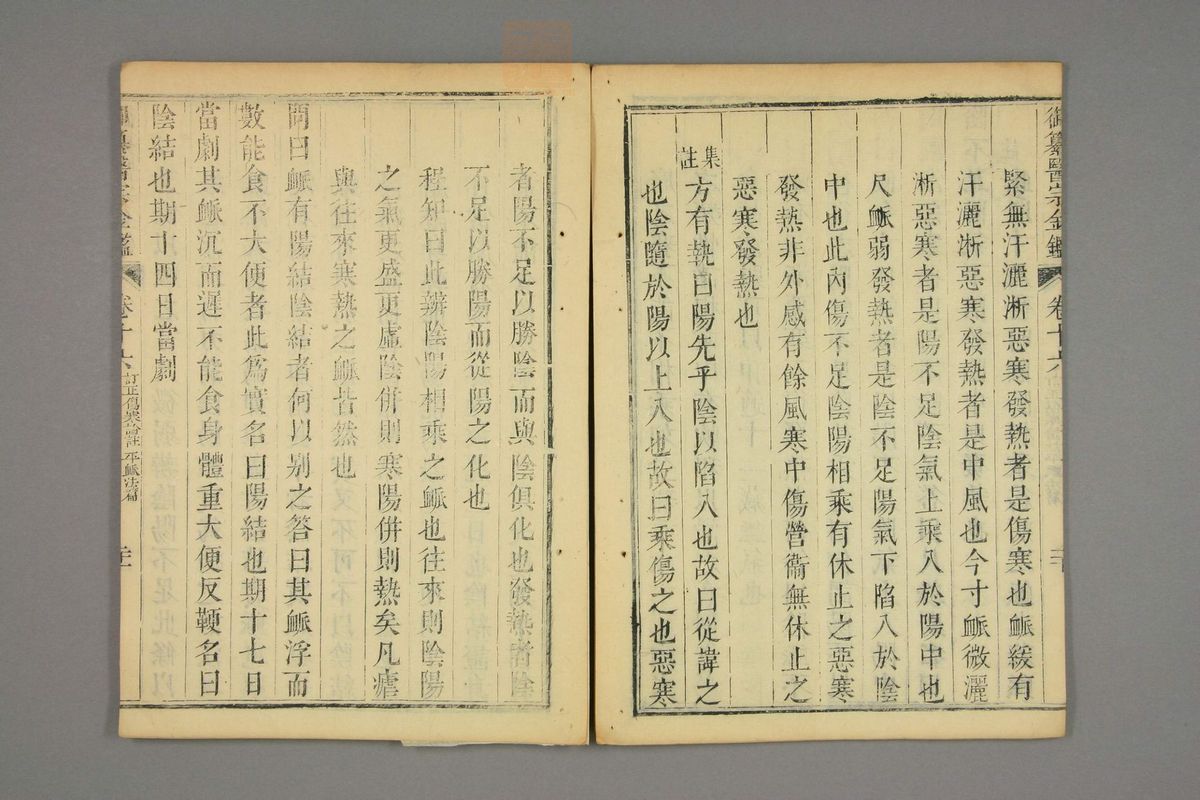 御纂醫宗金鑑 卷十六
緊無汗灑淅惡寒發熱者是傷寒也脈緩有
汗灑淅惡寒發熱者是中風也今寸脈微灑
淅惡寒者是陽不足陰氣上乘入於陽中也
尺脈弱發熱者是陰不足陽氣下陷入於陰
中也此內傷不足陰陽相乘有休止之惡寒
發熱非外感有餘風寒中傷營衞無休止之
惡寒發熱也
集註
方有執曰陽先乎陰以陷入也故曰從諱之
也陰隨於陽以上入也故曰乘傷之也惡寒
者陽不足以勝陰而與陰俱化也發熱者陰
不足以勝陽而從陽之化也
程知曰此辨陰陽相乘之脈也往來則陰陽
之氣更盛更虛陰併則寒陽併則熱矣凡瘧
與往來寒熱之脈皆然也
問曰脈有陽結陰結者何以別之答曰其脈浮而
數能食不大便者此為實名曰陽結也期十七日
當劇其脈沉而遲不能食身體重大便反鞕名曰
陰結也期十四日當劇
御纂醫宗金鑑 卷十六 訂正傷寒論註 平脈法篇